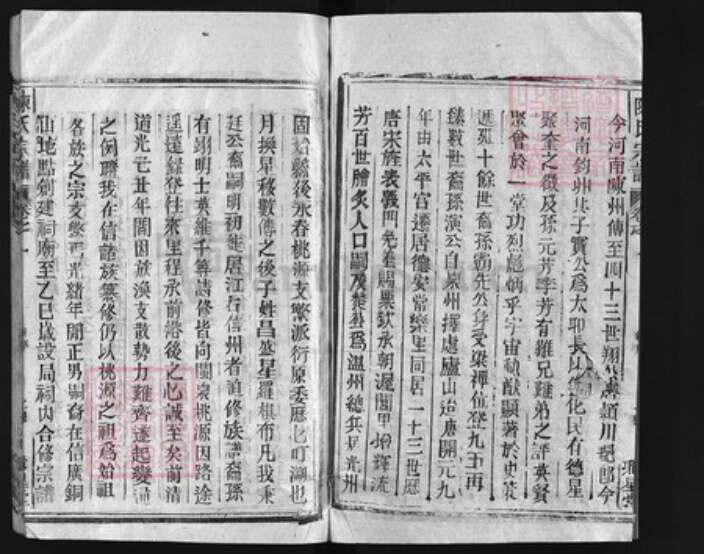 今河南陳州傳至四十三世翔公遷潁川郡即今
河南鈞州其子寔公為太邱長以德化民有德星
聚奎之徵及孫元芳季芳有難兄難弟之評英賢
聚會於一堂功烈彪炳乎宇宙猷顯著於史策
遞苑十餘世裔孫霸先公身受梁禪位登九五再
臻數世裔孫演公自泉州擇處廬山迨唐開元九
年由太平宮遷居德安常樂里同居一十三世歷
唐宋旌表義門免差賜粟欽承朝渥閭里增輝流
芳百世膾炙人口嗣及楚公為溫州總兵居光州
固始縣後永春桃源支繁派衍原委歷匕叮溯也
月換星移數傳之後子姓昌盛星羅棋布凡我秉
廷公裔嗣明初徙居江右信州者迫修族譜裔孫
有翊明士英維千等請修皆向閩泉桃源因路途
遙遠錄脊往來里程承前啓後之心誠至矣前清
道光辛丑年間因族渙支散勢力難齊遂起變通
之例聯我在信諸族纂修仍以桃源之祖為始祖
各族之宗支繁焉光緒年間正男嗣裔在信廣銅
仙地點創建祠廟至乙巳歲設局祠內合修宗譜
陳氏宗譜